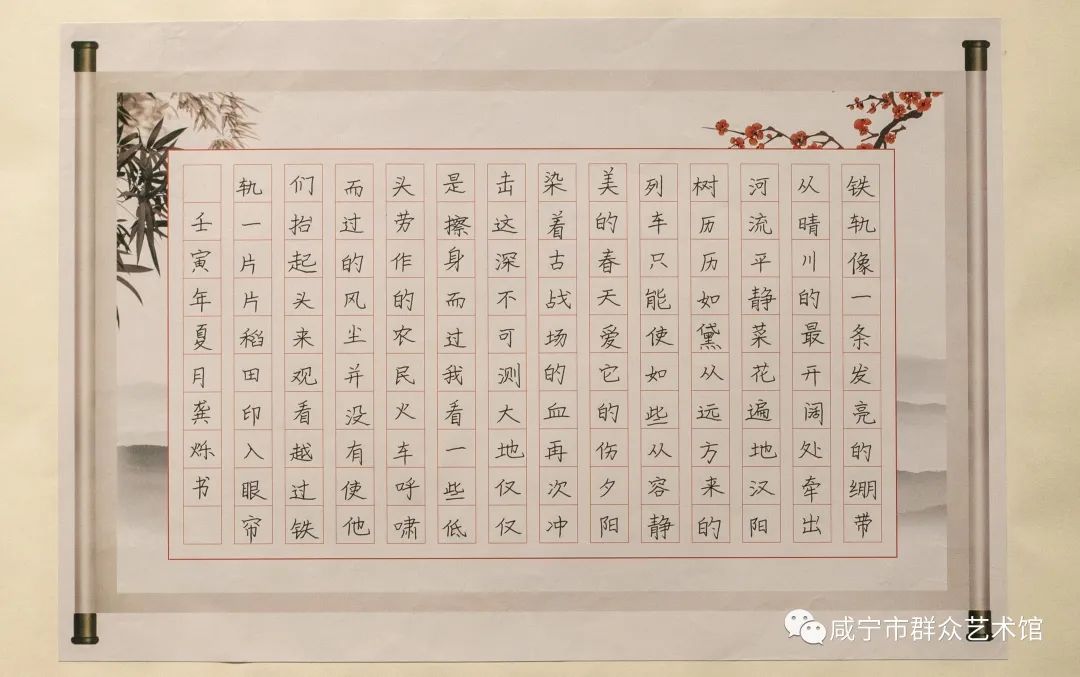 铁轨像一条发亮的绷带
从晴川的最开阔处牵出
河流平静菜花遍地汉阳
树历历如黛从远方来的
列车只能使如些从容静
美的春天爱它的伤夕阳
染着古战场的血再次冲
击这深不可测大地仅仅
是擦身而过我看一些低
头劳作的农民火车呼啸
而过的风尘并没有使他
们抬起头来观看越过铁
轨一片片稻田印入眼帘
壬寅年夏月龚烁书
咸宁市群众艺术馆